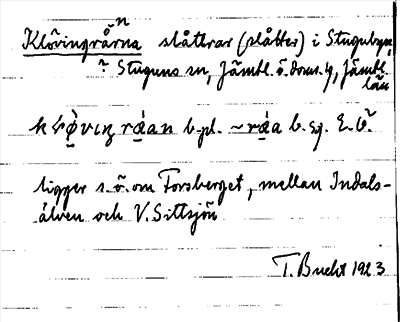 Klövingrårna slåttrar (slåtter) i Stugubyn,
? Stuguns sn, Jämtl. ö. doms. 4, Jämtl.
län
b. pl. ~ b. sg.
ligger s. ö. om Forsberget, mellan Indals-
älven och V. Sittsjön
T. Bucht 1923